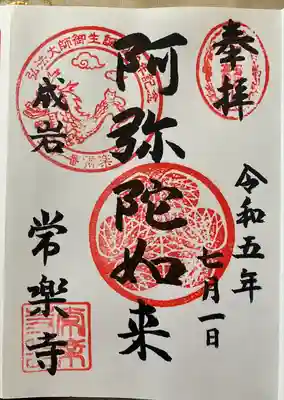 奉拝
令和五年
七月一日
阿弥陀如来
成岩
常楽寺
弘法大師御生誕